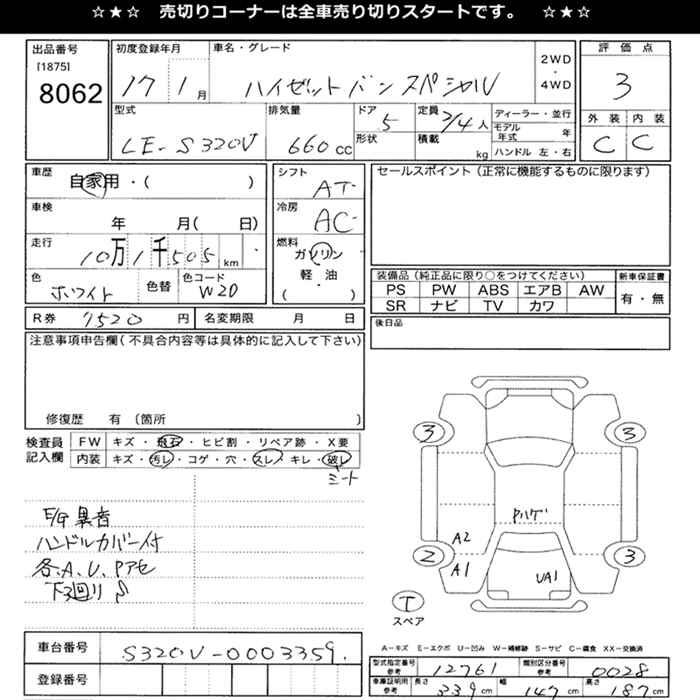 ☆★☆ 売切りコーナーは全車売り切りスタートです。 ☆★☆
出品番号
[1875]
8062
初度登録年月
17 1 月
車名・グレード
ハイゼットバン スペシャル
2WD
・
4WD
評価点
3
外装 内装
C C
型式
LE-S320V
排気量
660 cc
ドア
5
形状
定員
2/4 人
積載
kg
ディーラー・並行
モデル年式 年
ハンドル 左・右
車歴
自家用・( )
車検
年 月( 日)
走行
10万1千505 km
色
ホワイト
色替
色コード
W20
シフト
AT
冷房
AC
燃料
ガソリン
軽・油
( )
セールスポイント(正常に機能するものに限ります)
装備品(純正品に限り○をつけてください)
PS PW ABS エアB AW
SR ナビ TV カワ
新車保証書
有・無
R券 7520 円
名変期限 月 日
後日品
注意事項申告欄(不具合内容等は具体的に記入して下さい)
修復歴 有(箇所 )
検査員記入欄
FW キズ・飛石・ヒビ割・リペア跡・X要
内装 キズ・汚レ・コゲ・穴・スレ・キレ・破レ
シート
E/G異音
ハンドルカバー付
各、A、U、Pアセ
下廻りS
3 3
Pハゲ
A2
2 A1 UA1 3
T
スペア
A-キズ E-エクボ U-凹み W-補修跡 S-サビ C-腐食 XX-交換済
車台番号 S320V-0003359
登録番号
型式指定番号 参考 12761
類別区分番号 参考 0028
車庫証明用 参考 長さ 339 cm 幅 147 cm 高さ 187 cm